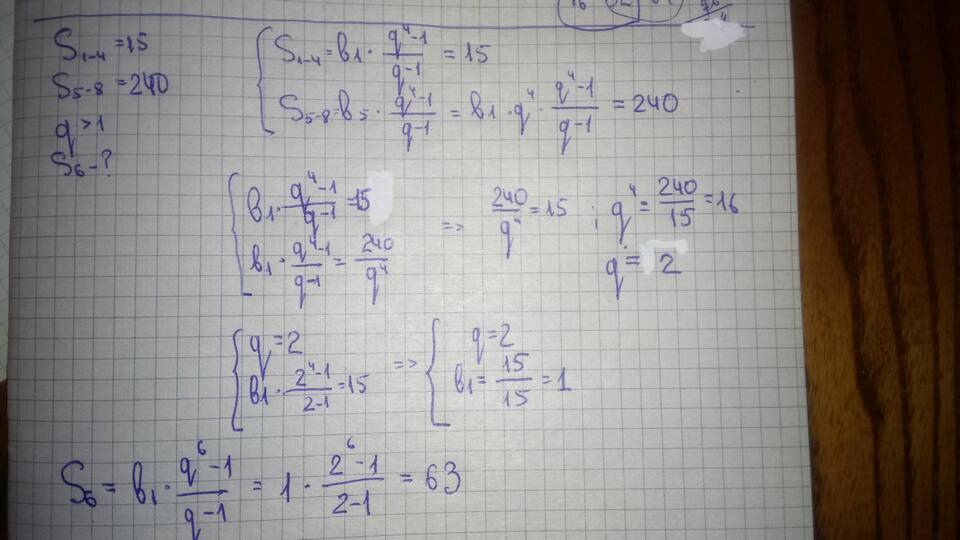 S₁₋₄ = 15
S₅₋₈ = 240
q > 1
S₆ - ?
S₁₋₄ = b₁ · (q⁴-1)/(q-1) = 15
S₅₋₈ = b₅ · (q⁴-1)/(q-1) = b₁ · q⁴ · (q⁴-1)/(q-1) = 240
b₁ · (q⁴-1)/(q-1) = 15
b₁ · (q⁴-1)/(q-1) = 240/q⁴
=> 240/q⁴ = 15 ; q⁴ = 240/15 = 16
q = 2
q = 2
b₁ · (2⁴-1)/(2-1) = 15
=> q = 2
b₁ = 15/15 = 1
S₆ = b₁ · (q⁶-1)/(q-1) = 1 · (2⁶-1)/(2-1) = 63